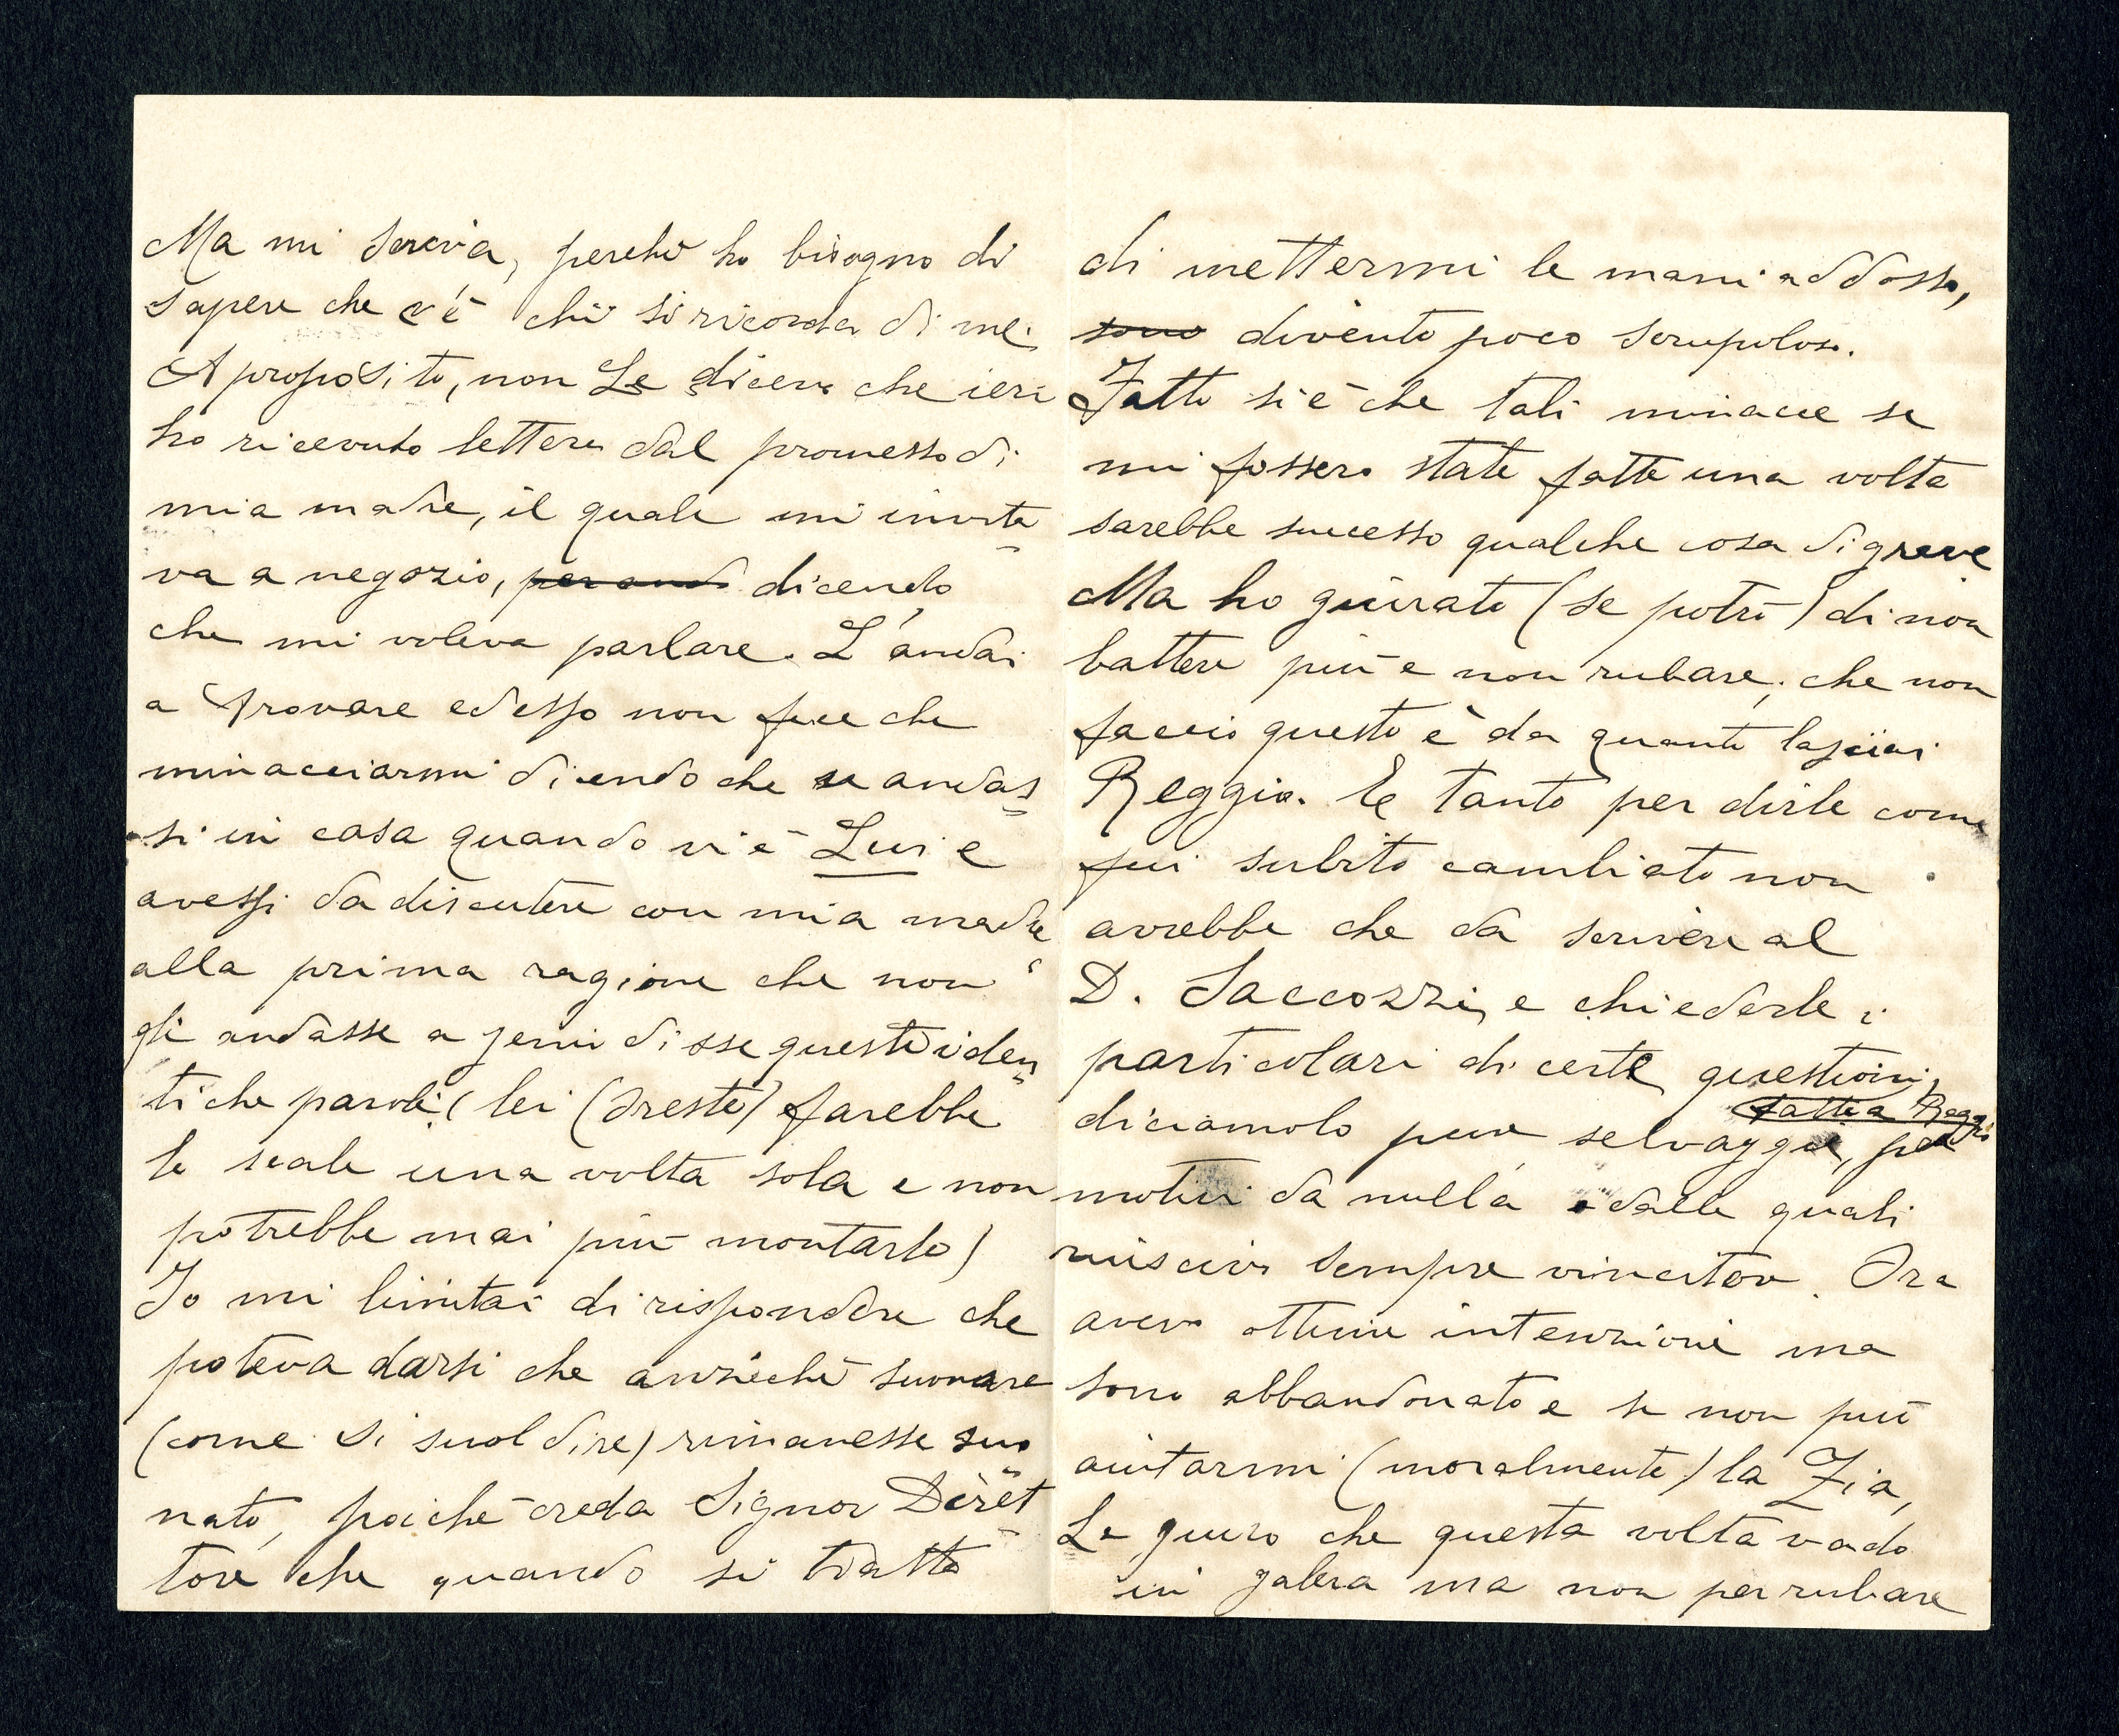 Ma mi scriva, perchè ho bisogno di
sapere che c'è chi si ricorda di me.
A proposito, non Le diceva che ieri
ho ricevuto lettera dal promesso di
mia madre, il quale mi invita=
va a negozio, dicendo
che mi voleva parlare. L'andai
a trovare ed esso non fece che
minacciarmi dicendo che se andas=
si in casa quando vi è Lui e
avessi da discutere con mia madre
alla prima ragione che non
gli andasse a geni disse queste iden=
tiche parole, (lei (Oreste) farebbe
le scale una volta sola e non
potrebbe mai più montarle)
Io mi limitai di rispondere che
poteva darsi che anzichè suonare
(come si suol dire) rimanesse suo=
nato, poichè creda Signor Diret=
tore che quando si tratta
di mettermi le mani addosso,
sono divento poco scrupoloso.
Fatto si è che tali minacce se
mi fossero state fatte una volta
sarebbe successo qualche cosa di grave
Ma ho giurato (se potrò) di non
battere più e non rubare; che non
faccio questo è da quanto lasciai
Reggio. E tanto per dirle come
fui subito cambiato non
avrebbe che da scrivere al
D. Saccozzi, e chiederle i
particolari di certe questioni,
fatte a Reggio
diciamolo pure selvaggie, per
motivi da nulla e dalle quali
riuscivo sempre vincitore. Ora
avevo ottime intenzioni ma
sono abbandonato e se non può
aiutarmi (moralmente) la Zia,
Le giuro che questa volta vado
in galera ma non per rubare